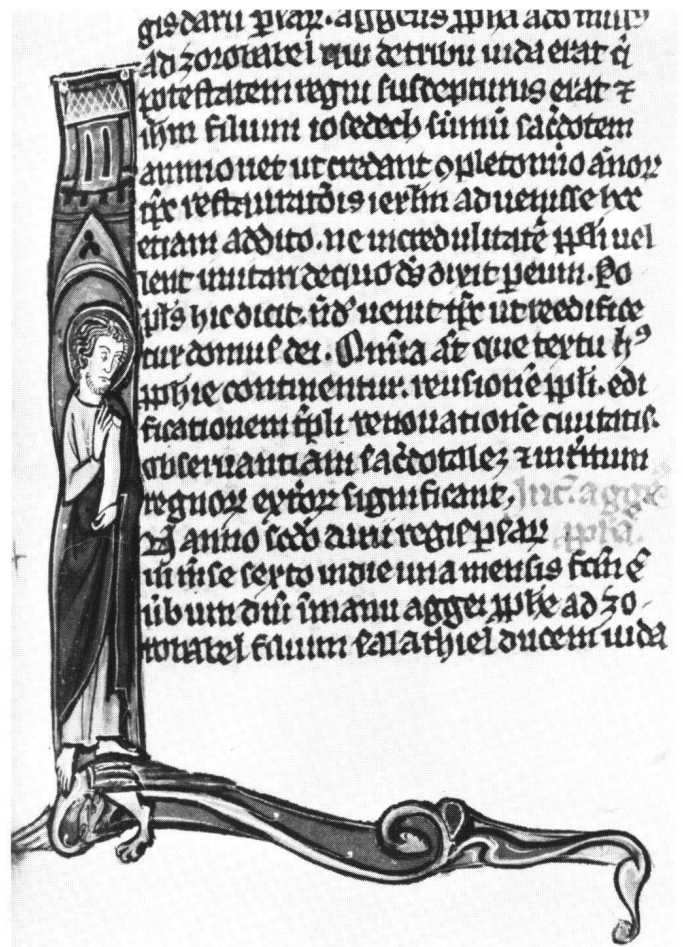 gis darii p̄sar̄. aggeus ꝓph̄a admonuit
ad zorobabel qui de tribu iuda erat q̄
potestatem regni suscepturus erat ⁊
ih̄m filium iosedech sūmū sac̄dotem
ammonet ut credant ꝯpleto nūo ānoꝝ
tp̄r restauratōis ierl̄m aduenisse hec
etiam addito. ne incredulitatē ppl̄i uel
lent imitari de quo dn̄s dixit p eum. Po
pl̄s hic dicit. nd̄ uenit tp̄r ut reedifice
tur domus dei. Om̄ia aūt que textu hꝰ
ꝓphie continentur. reuisionē ppl̄i. edi
ficationem tp̄li renouationē ciuitatis.
obseruantiam sac̄dotaleꝫ ⁊ int̄itum
regnoꝝ ext̄oꝝ significant. Inc̄. agge᷒
N anno sc̄do darii regis p̄sar̄ ꝓph̄a.
in m̄se sexto in die una mensis fc̄m ē
ūbum dn̄i ī manu aggei ꝓph̄e ad zo
robabel filium salathiel ducem iuda